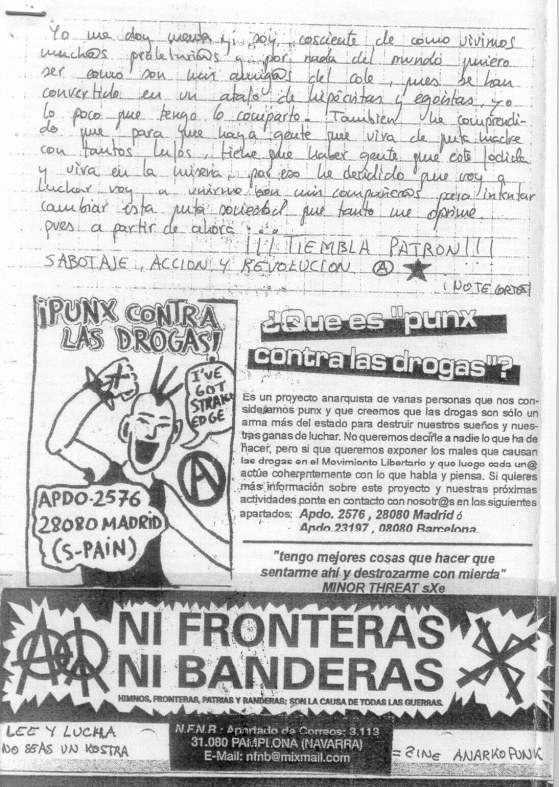 Yo me doy cuenta y soy cosciente de como vivimos
much@s proletari@s y por nada del mundo quiero
ser como son mis amig@s del cole, pues se han
convertido en un atajo de hipócritas y egoistas, yo
lo poco que tengo lo comparto. Tambien he comprendi-
do que para que haya gente que viva de puta madre
con tantos lujos, tiene que haber gente que esté jodida
y viva en la miseria, por eso he decidido que voy a
luchar voy a unirme con mis compañer@s para intentar
cambiar esta puta sociedad que tanto me oprime
pues a partir de ahora...
¡¡¡TIEMBLA PATRON!!!
SABOTAJE, ACCION Y REVOLUCION Ⓐ ★
¡NO TE CORTES!
¡PUNX CONTRA
LAS DROGAS!
I'VE
GOT
STRAIGHT
EDGE
APDO-2576
28080 MADRID
(S-PAIN)
¿Que es "punx
contra las drogas"?
Es un proyecto anarquista de varias personas que nos con-
sideramos punx y que creemos que las drogas son sólo un
arma más del estado para destruir nuestros sueños y nues-
tras ganas de luchar. No queremos decirle a nadie lo que ha de
hacer, pero si que queremos exponer los males que causan
las drogas en el Movimiento Libertario y que luego cada un@
actúe coherentemente con lo que habla y piensa. Si quieres
más información sobre este proyecto y nuestras próximas
actividades ponte en contacto con nosotr@s en los siguientes
apartados: Apdo. 2576 , 28080 Madrid ó
Apdo. 23197 , 08080 Barcelona.
"tengo mejores cosas que hacer que
sentarme ahí y destrozarme con mierda"
MINOR THREAT sXe
NI FRONTERAS
NI BANDERAS
HIMNOS, FRONTERAS, PATRIAS Y BANDERAS; SON LA CAUSA DE TODAS LAS GUERRAS.
LEE Y LUCHA
NO SEAS UN KOSTRA
N.F.N.B.: Apartado de Correos: 3.113
31.080 PAMPLONA (NAVARRA)
E-Mail: nfnb@mixmail.com
= ZINE ANARKOPUNK